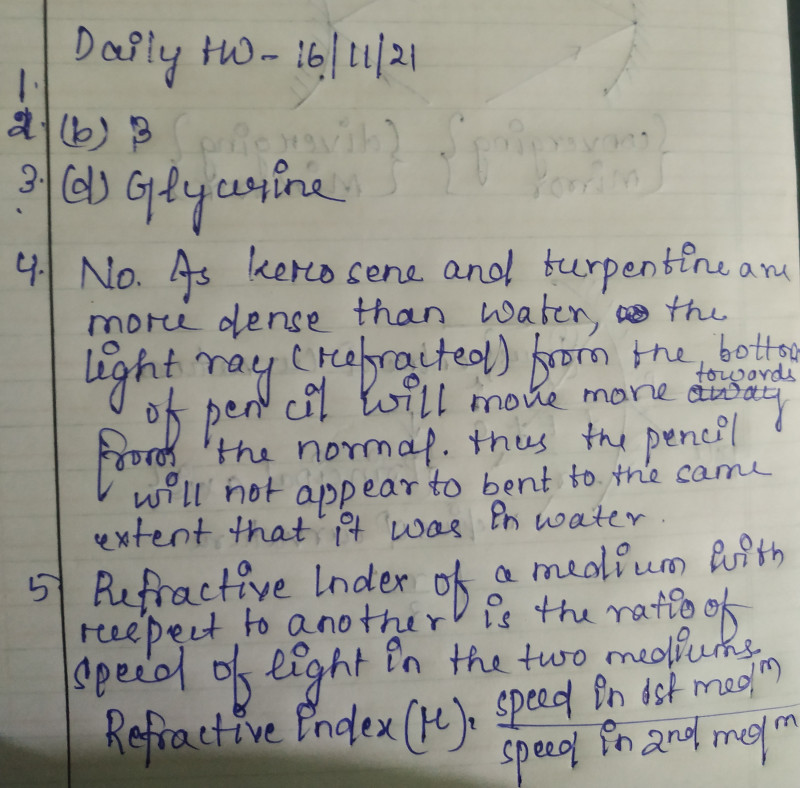 Daily HW - 16/11/21
1.
2. (b) B
3. (d) Glycerine
4. No. As kerosene and turpentine are
more dense than water, the
light ray (refracted) from the bottom
of pencil will move more away towards
from the normal. thus the pencil
will not appear to bent to the same
extent that it was in water.
5 Refractive Index of a medium with
respect to another is the ratio of
speed of light in the two mediums
Refractive index (μ) = speed in 1st medm
speed in 2nd medm
{converging} {diverging}
{mirror} {mirror}